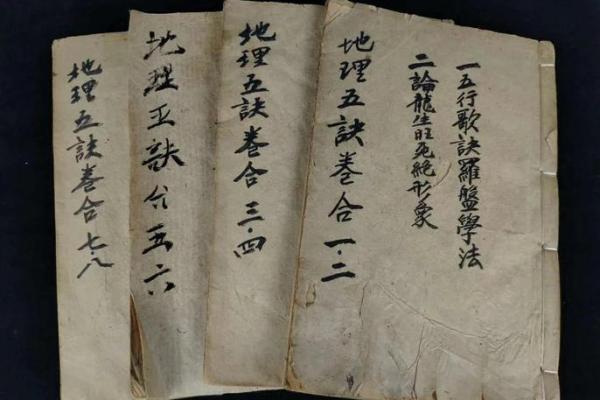 一五行歌訣羅盤學法
二論龍生旺死絕形象
地理五訣卷合一·二
地理五訣卷合三·四
地理五訣合五六
地理五訣卷合七·八